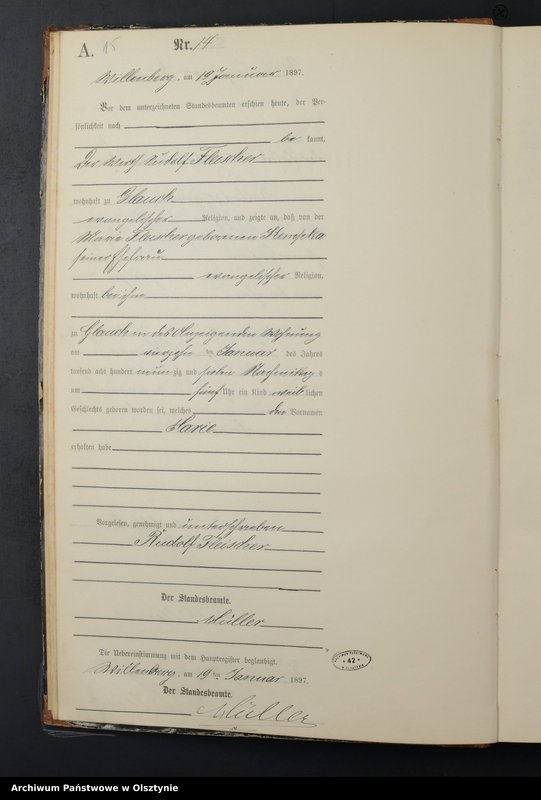 A. 15 Nr. 14
Willenberg, am 19 Januar 1897.
Vor dem unterzeichneten Standesbeamten erschien heute, der Per-
sönlichkeit nach
be kannt,
Der Wirth Rudolf Fleischer
wohnhaft zu Glauch
evangelischer Religion, und zeigte an, daß von der
Marie Fleischer geborenen
seiner Ehefrau
evangelischer Religion,
wohnhaft bei ihm
zu Glauch in des Anzeigenden Wohnung
am ten Januar des Jahres
tausend acht hundert neun zig und sieben Nachmittag s
um fünf Uhr ein Kind weib lichen
Geschlechts geboren worden sei, welches den Vornamen
Marie
erhalten habe
Vorgelesen, genehmigt und unterschrieben
Rudolf Fleischer
Der Standesbeamte.
Müller
Die Uebereinstimmung mit dem Hauptregister beglaubigt.
Willenberg, am 19 ten Januar 1897.
Der Standesbeamte.
Müller
42
Archiwum Państwowe w Olsztynie